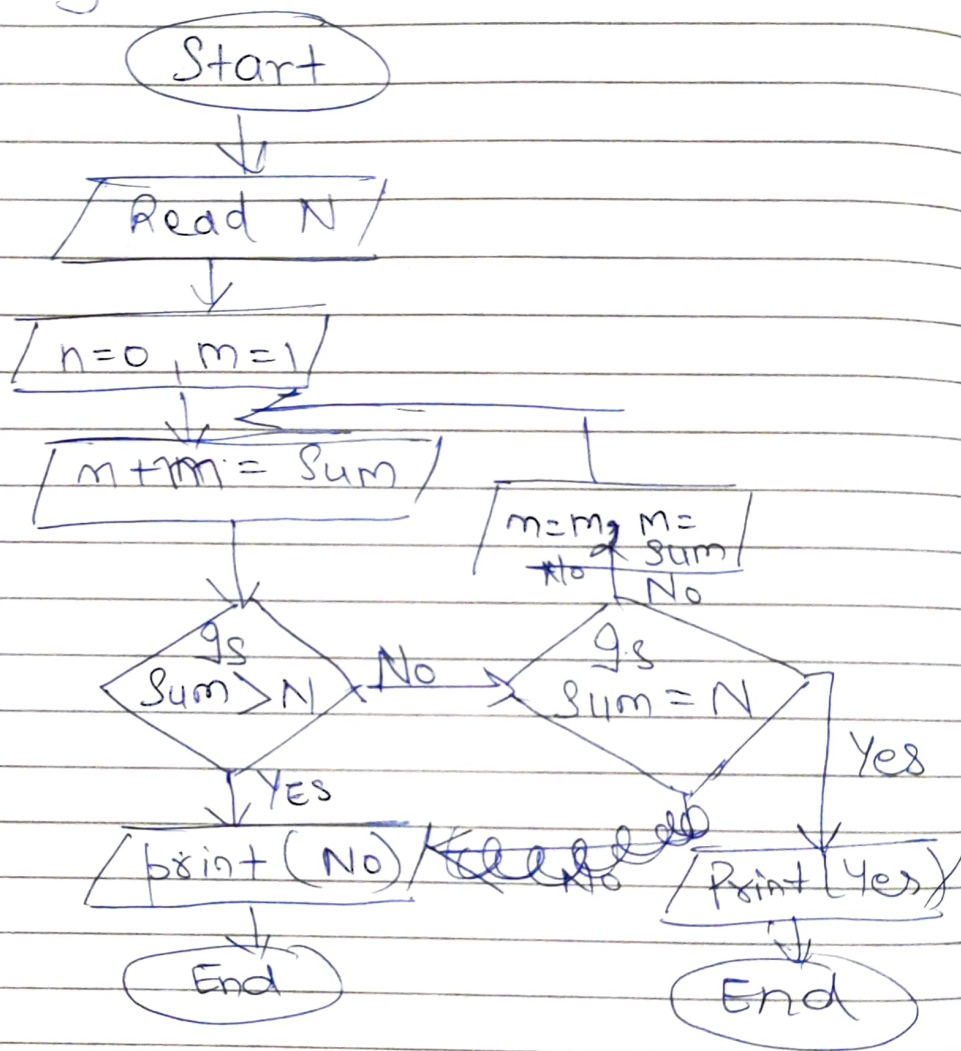 Start
Read N
n=0, m=1
n+m = Sum
n=m, m=
Sum
No
No
Is
Sum > N
No
Is
Sum = N
Yes
YES
print (No)
No
Print (Yes)
End
End